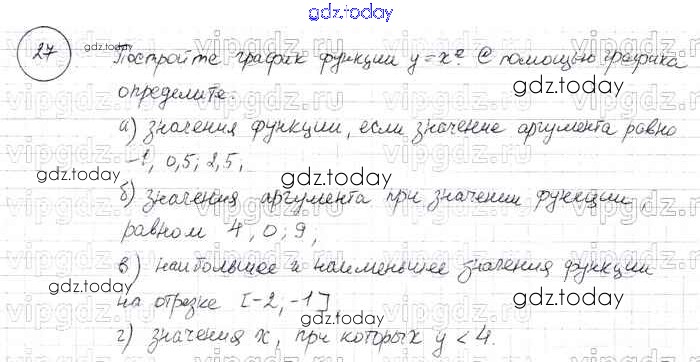 gdz.today
27 gdz.today Постройте график функции y = x². С помощью графика
gdz.today
определите:
а) значения функции, если значение аргумента равно
-1; 0,5; 2,5;
gdz.today
gdz.today
б) значения аргумента при значении функции,
равном 4; 0; 9;
в) наибольшее и наименьшее значения функции
на отрезке [-2; -1]
gdz.today
gdz.today
г) значения x, при которых y < 4.